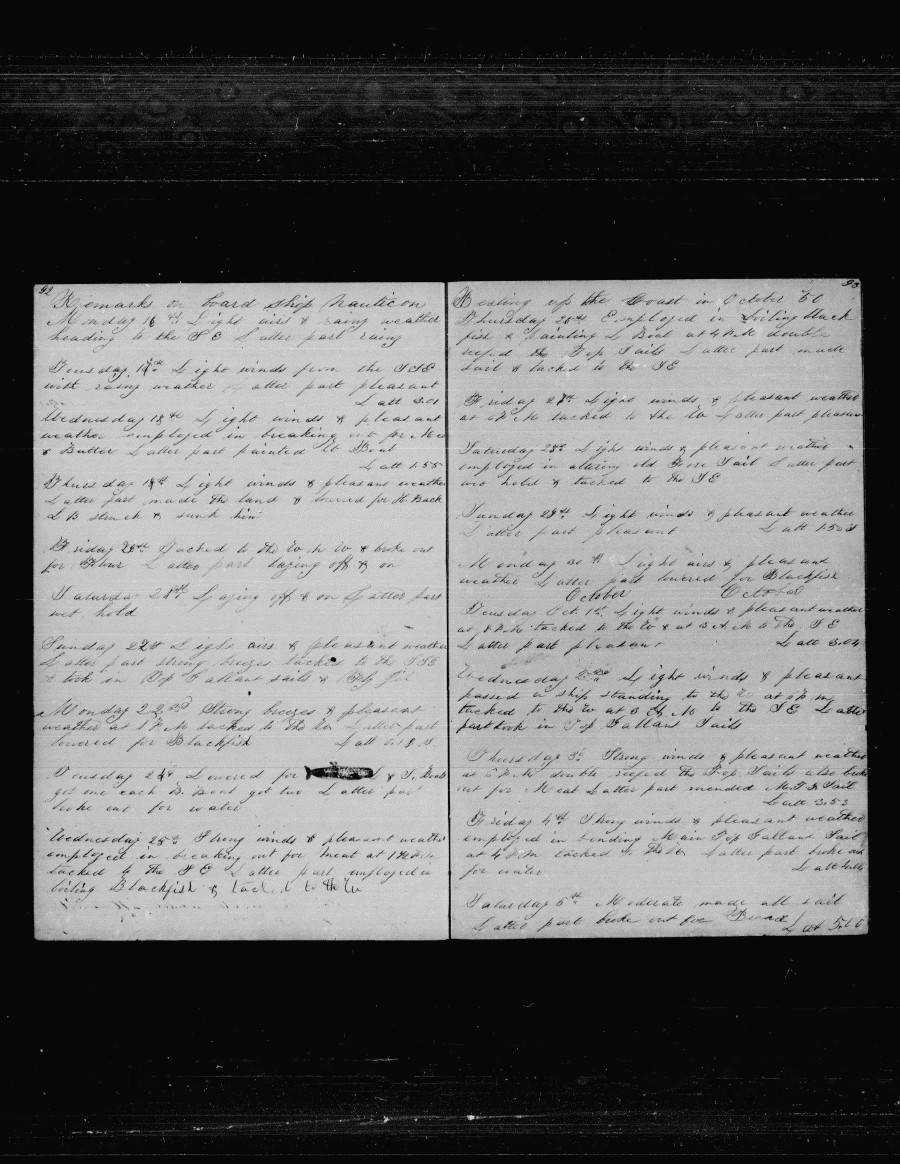 92
Remarks on board Ship Nauticon
Monday 16th Light airs & rainy weather
heading to the S E Latter part rainy
Tuesday 17th Light winds from the SSE
with rainy weather Latter part pleasant
Latt 3.01
Wednesday 18th Light winds & pleasant
weather employed in breaking out for Meat
& Butter Latter part painted Boat
Latt 1.55
Thursday 19th Light winds & pleasant weather
Latter part made the land & lowered for H Back
L B struck & sunk him
Friday 20th Tacked to the W & broke out
for Flour Latter part laying off & on
Saturday 21st Laying off & on Latter part
wet hold
Sunday 22d Light airs & pleasant weather
Latter part strong breezes tacked to the SSE
& took in Top Gallant sails & Fly Jib
Monday 22nd Strong breezes & pleasant
weather at 1 P.M tacked to the W Latter part
lowered for Blackfish
Latt
Tuesday 24th Lowered for & S. Boats
got one each B. Boat got two Latter part
broke out for water
Wednesday 25th Strong winds & pleasant weather
employed in breaking out for meat at 1 P.M
tacked to the S E Latter part employed in
boiling Blackfish & tacked to the W
93
Beating up the Coast in October 50
Thursday 26th Employed in boiling Black
fish & painting L Boat at 4 P.M double
reefed the Top Sails Latter part made
sail & tacked to the SE
Friday 27th Light winds & pleasant weather
at P.M tacked to the W Latter part pleasant
Saturday 28th Light winds & pleasant weather
employed in altering old Fore Sail Latter part
wet hold & tacked to the SE
Sunday 29th Light winds & pleasant weather
Latter part pleasant Latt 1.50 S
Monday 30th Light airs & pleasant
weather Latter part lowered for Blackfish
October October
Tuesday Oct. 1st Light winds & pleasant weather
at P.M tacked to the W & at 3 A.M to the SE
Latter part pleasant Latt 3.04
Wednesday 2nd Light winds & pleasant
passed a ship standing to the W at P.M
tacked to the W at 3 A M to the SE Latter
part took in Top Gallant Sails
Thursday 3d Strong winds & pleasant weather
at 6 P.M double reefed the Top Sails also broke
out for Meat Latter part mended M.T.G Sail
Latt 3.53
Friday 4th Strong winds & pleasant weather
employed in bending Main Top Gallant Sail
at 4 P.M tacked to the W Latter part broke out
for water
Latt
Saturday 5th Moderate made all sail
Latter part broke out for Bread
Latt 5.10